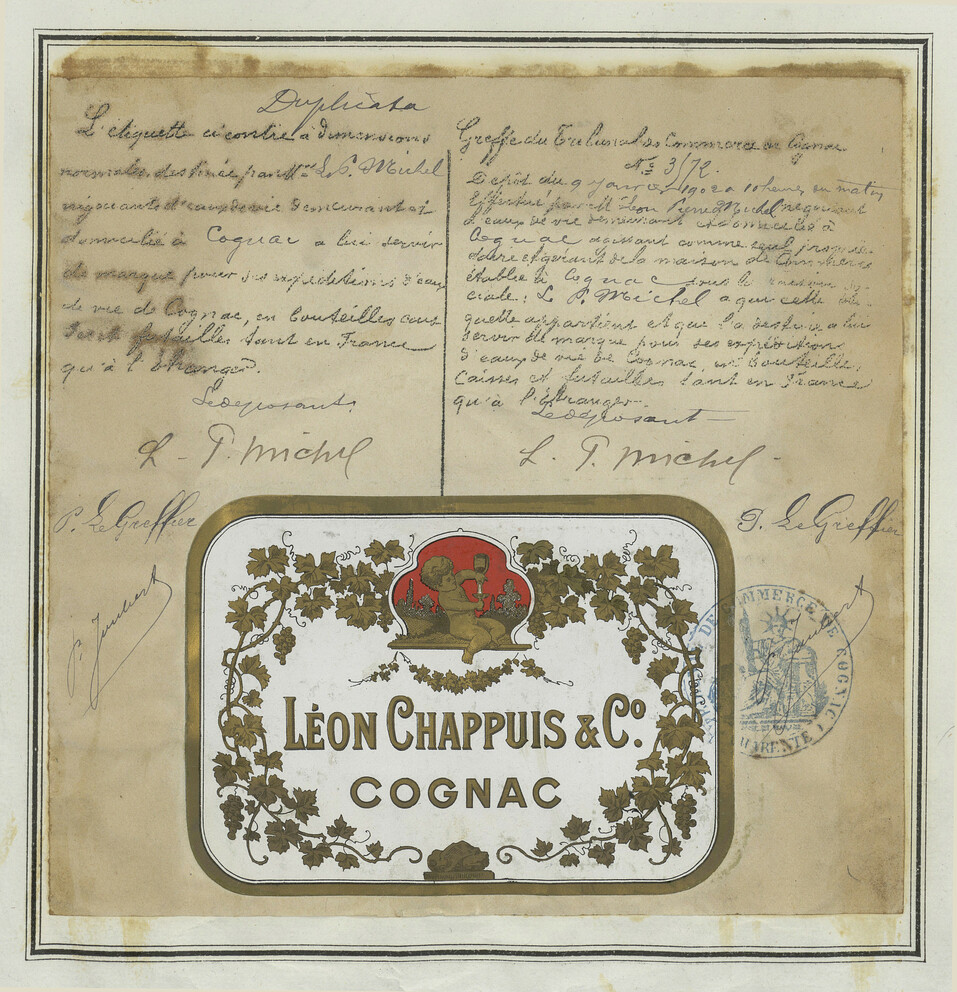 Duplicata
L'étiquette ci contre à dimensions
normales, destinée par Mr L. P. Michel
négociants d'eaux de vie demeurant et
domicilié à Cognac a lui servir
de marque pour ses expéditions d'eaux
de vie de Cognac, en bouteilles cais
futailles tant en France
qu'à l'étranger.
Le déposant.
L. P. Michel
P. Le Greffier
Greffe du Tribunal de Commerce de Cognac
No 372.
Dépôt du 9 Janvier 1902 a 10 heures du matin
Effectué par Mr Léon Pierre Michel négociant
d'eaux de vie demeurant et domicilié à
Cognac agissant comme seul proprié-
taire et gérant de la maison de Commerce
établie à Cognac sous la raison so-
ciale: L. P. Michel a qui cette éti-
quette appartient et qui l'a destinée a lui
servir de marque pour ses expéditions
d'eaux de vie de Cognac, en bouteilles,
caisses et futailles tant en France
qu'à l'étranger.
Le déposant
L. P. Michel
P. Le Greffier
LÉON CHAPPUIS & Co.
COGNAC
DE COMMERCE DE COGNAC
CHARENTE